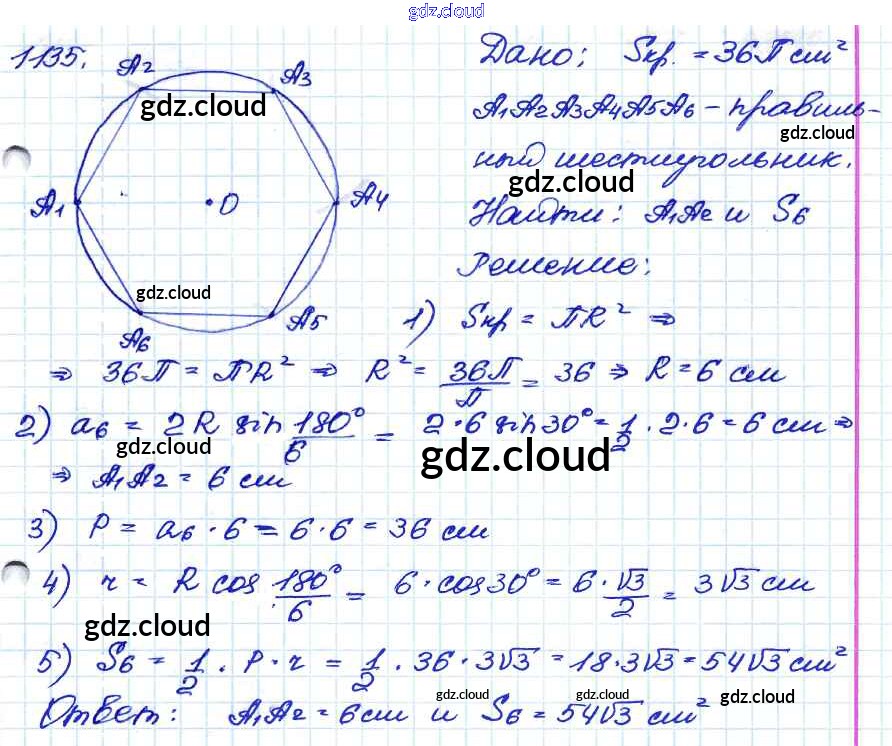 gdz.cloud
1135.
A2
A3
A1
O
A4
A6
A5
gdz.cloud
gdz.cloud
Дано: Sкр. = 36π см²
A1A2A3A4A5A6 – правиль-
gdz.cloud
ный шестиугольник.
gdz.cloud
Найти: A1A2 и S6
Решение:
1) Sкр = πR² ⇒
⇒ 36π = πR² ⇒ R² = 36π/π = 36 ⇒ R = 6 см
2) a6 = 2R sin 180°/6 = 2·6 sin 30° = 1/2 · 2·6 = 6 см ⇒
gdz.cloud
gdz.cloud
⇒ A1A2 = 6 см
3) P = a6 · 6 = 6 · 6 = 36 см
4) r = R cos 180°/6 = 6 · cos 30° = 6 · √3/2 = 3√3 см
gdz.cloud
5) S6 = 1/2 · P · r = 1/2 · 36 · 3√3 = 18 · 3√3 = 54√3 см²
gdz.cloud
gdz.cloud
gdz.cloud
Ответ: A1A2 = 6 см и S6 = 54√3 см²